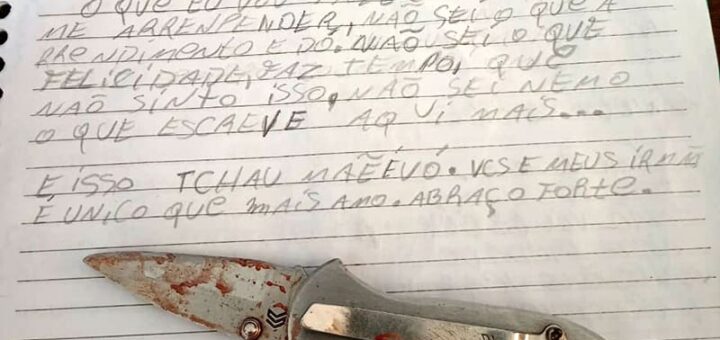 O QUE EU VOU
ME ARRENPENDER, NÃO SEI O QUE A
RRENDIMENTO E DÓ. NÃO SEI O QUE
FELICIDADE, FAZ TEMPO, QUE
NÃO SINTO ISSO, NÃO SEI NEMO
O QUE ESCREVE AQUI MAIS...
E ISSO TCHAU MÃE É VÓ. VCS E MEUS IRMÃ
É UNICO QUE MAIS AMO. ABRAÇO FORTE.